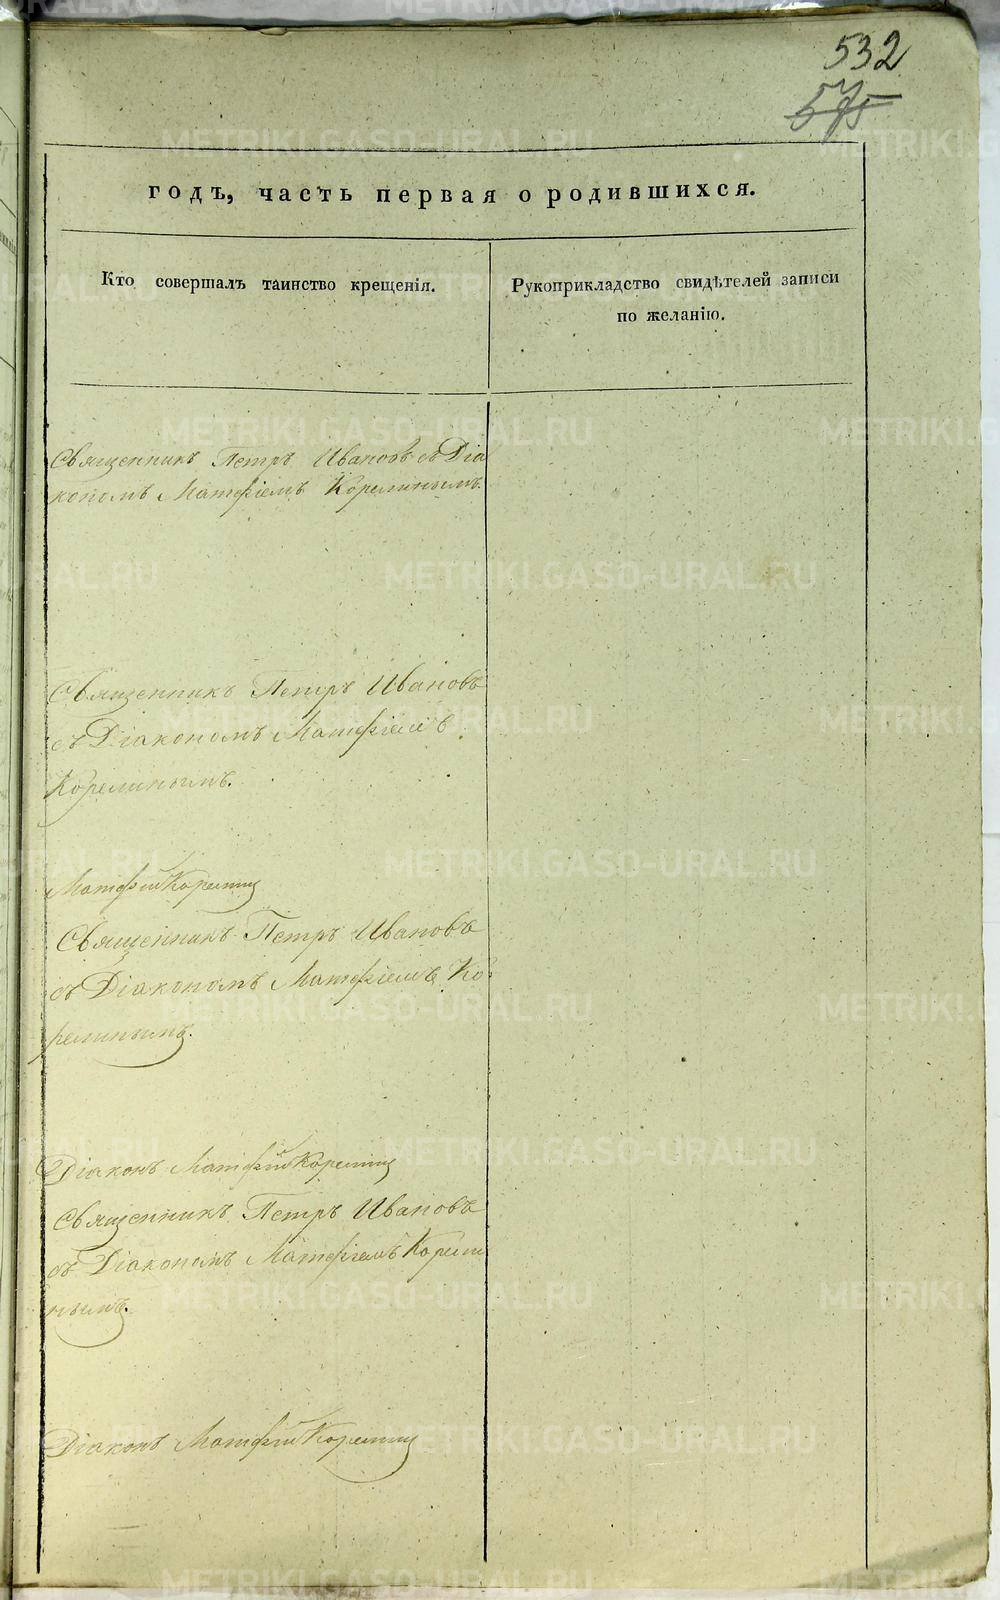 532
575
годъ, часть первая о родившихся.
Кто совершалъ таинство крещенія.
Рукоприкладство свидѣтелей записи
по желанію.
Священникъ Петръ Ивановъ съ Діа
кономъ Матфіемъ Корелинымъ.
Священникъ Петръ Ивановъ
съ Діакономъ Матфіемъ
Корелинымъ.
Матфій Корелинъ
Священникъ Петръ Ивановъ
съ Діакономъ Матфіемъ Ко
релинымъ.
Діаконъ Матфій Корелинъ
Священникъ Петръ Ивановъ
съ Діакономъ Матфіемъ Корели
нымъ.
Діаконъ Матфій Корелинъ
METRIKI.GASO-URAL.RU